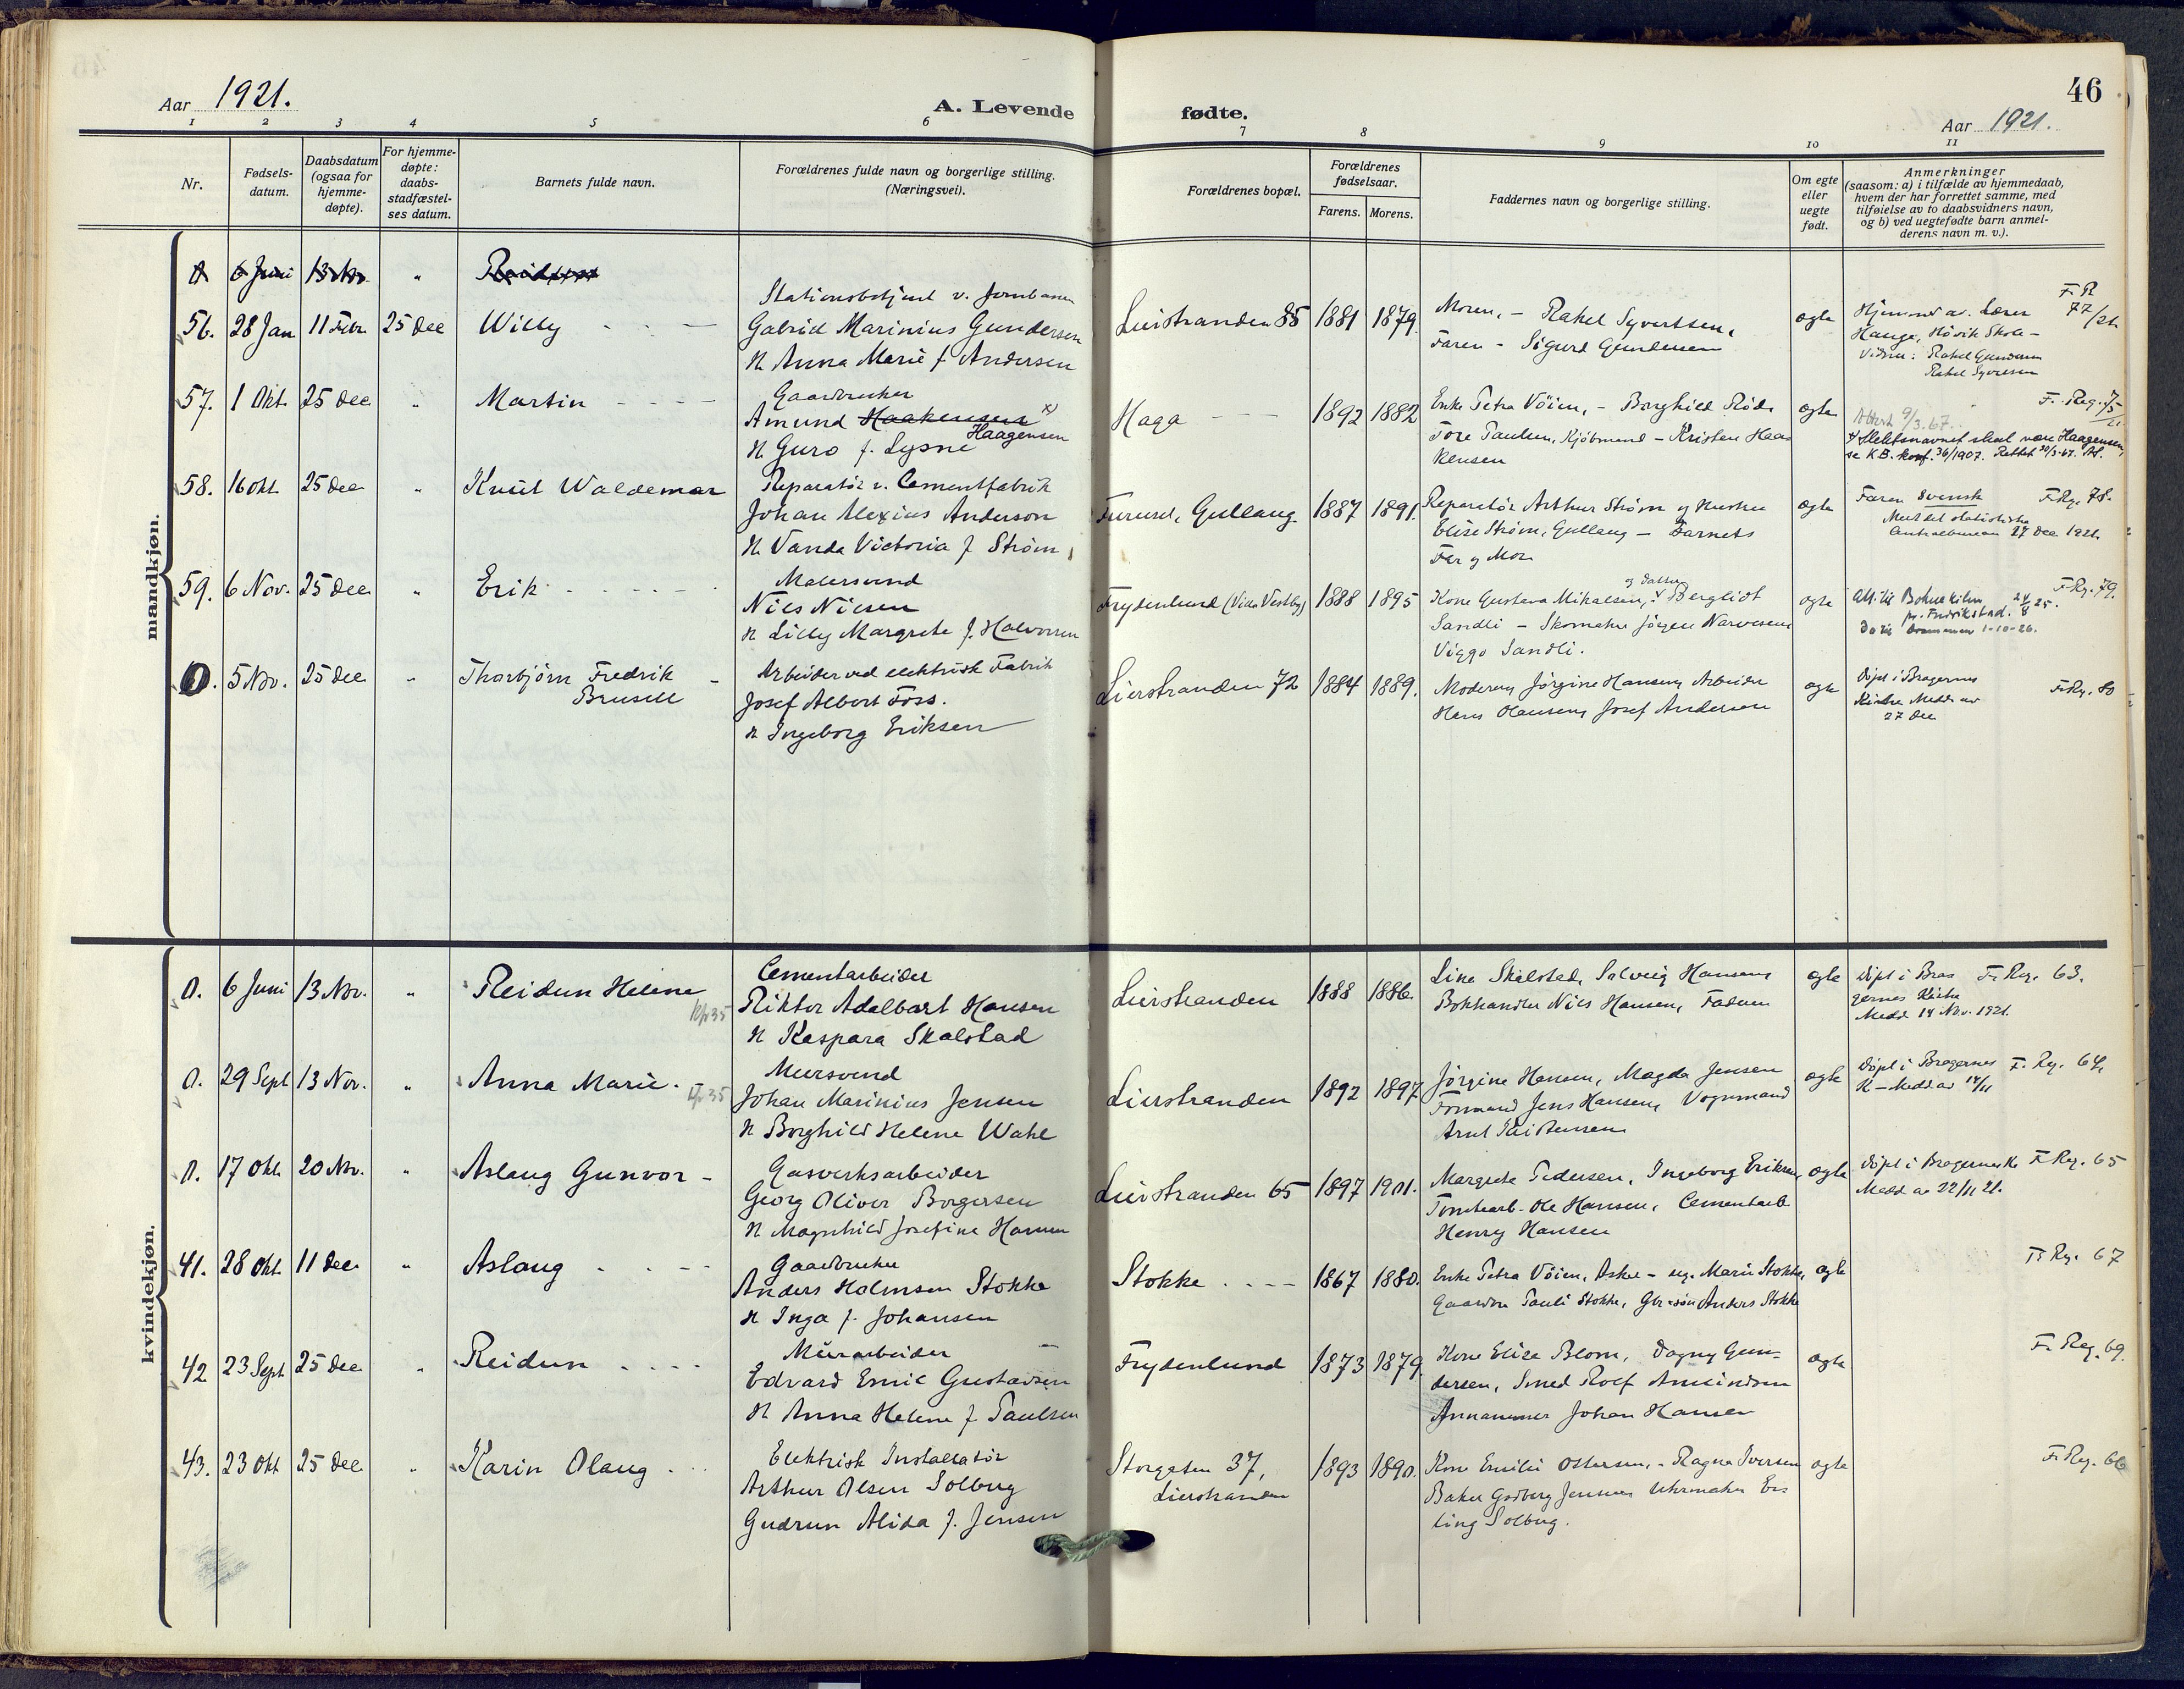 46
Aar 1921.
A. Levende fødte.
Aar 1921.
1 2 3 4 5 6 7 8 9 10 11
Nr.
Fødsels-
datum.
Daabsdatum
(ogsaa for
hjemme-
døpte).
For hjemme-
døpte:
daabs-
stadfæstel-
ses datum.
Barnets fulde navn.
Forældrenes fulde navn og borgerlige stilling.
(Næringsvei).
Forældrenes bopæl.
Forældrenes
fødselsaar.
Farens. Morens.
Faddernes navn og borgerlige stilling.
Om egte
eller
uegte
født.
Anmerkninger
(saasom: a) i tilfælde av hjemmedaab,
hvem der har forrettet samme, med
tilføielse av to daabsvidners navn,
og b) ved uegtefødte barn anmel-
derens navn m. v.).
mandkjøn.
0 6 Juni 13 Nov. " Reidun
56. 28 Jan 11 Febr 25 Dec Willy
Stationsbetjent v. Jernbanen
Gabriel Marinius Gundersen
H. Anna Marie f. Andersen
Lierstranden 85 1881 1879.
Moren, - Rakel Syvertsen,
Faren - Sigurd Gundersen
egte
Hjemmed av. Lærer
Hauge, Høvik Skole -
Vidner: Rakel Gundersen
Rakel Syvertsen
F.R 77/21
57. 1 Okt. 25 Dec " Martin
Gaardbruker
Amund Haakensen x)
Haagensen
H. Guro f. Lysne
Haga 1892 1882
Enke Petra Vöien, - Borghild Röde
Tore Paulsen, Kjöbmand - Kristen Haa-
kensen
egte
F. Reg.
Attest 9/3.67.
x) Slektsnavnet skal være Haagensen,
se K.B. konf. 36/1907. Rettet 30/3-67.
58. 16 Okt. 25 Dec " Knut Waldemar
Reparatör v. Cementfabrik
Johan Alexius Anderson
H. Vanda Victoria f. Ström
Furusel, Gullaug. 1887 1891.
Reparatör Arthur Ström og Hustru
Elise Ström, Gullaug - Barnets
Far og Mor
egte
Faren Svensk
Meddel statistiske
Centralbureau 27 Dec 1921.
F.Rg. 78.
59. 6 Nov. 25 Dec " Erik
Malersvend
Nils Nilsen
H. Lilly Margrete f. Halvorsen
Frydenlund (Villa Vestby) 1888 1895
og datter
Kone Gustava Mikalsen, Bergliot
Sandli - Skomaker Jörgen Narvesen
Viggo Sandli.
egte
pr. Fredrikstad. 24/8 25.
Do til Drammen 1-10-26.
F.Rg. 79.
0. 5 Nov. 25 Dec " Thorbjörn Fredrik
Brusell
Arbeider ved elektrisk Fabrik
Josef Albert Foss.
H. Ingeborg Eriksen
Lierstranden 72 1884 1889.
Moderen, Jörgine Hansen, Arbeider
Hans Hansen, Josef Andersen
egte
Döpt i Bragernes
Kirke Medd av
27 Dec
F.Rg. 80
kvindekjøn.
0. 6 Juni 13 Nov. " Reidun Helene
Cementarbeider
Riktor Adalbart Hansen
H. Kaspara Skalstad
Lierstranden 1888 1886.
Line Skalstad, Solveig Hansen
Bokhandler Nils Hansen, Faderen
egte
Döpt i Bra-
gernes Kirke
Medd 14 Nov. 1921.
F. Reg. 63.
0. 29 Sept 13 Nov. " Anna Marie.
Mursvend
Johan Marinius Jensen
H. Borghild Helene Wahl
Lierstranden 1892 1897
Jörgine Hansen, Magda Jensen
Formand Jens Hansen, Vognmand
Arnt Kristensen
egte
Döpt i Bragernes
K - Medd av 14/11
F. Reg. 64
0. 17 Okt. 20 Nov. " Aslaug Gunvor -
Gasverksarbeider
Georg Oliver Borgersen
H. Magnhild Josefine Hansen
Lierstranden 65 1897 1901.
Margrete Pedersen, Ingeborg Eriksen,
Tomtearb. Ole Hansen, Cementarb
Henry Hansen
egte
Döpt i Bragernes K
Medd av 22/11 21.
F Reg. 65
41. 28 Okt. 11 Dec. " Aslaug
Gaardbruker
Anders Holmsen Stokke
H. Inga f. Johansen
Stokke 1867 1880.
Enke Petra Vöien, Asker - ug. Marie Stokke,
Gaardbr Pauli Stokke, Gbr.sön Anders Stokke
egte
F. Reg. 67
42 23 Sept 25 Dec " Reidun
Murarbeider
Edvard Emil Gustavsen
H. Anna Helene f. Paulsen
Frydenlund 1873 1879.
Kone Elise Blom, Dagny Gun-
dersen, Smed Rolf Amundsen
Johan Hansen
egte
F. Reg. 69.
43. 23 Okt 25 Dec " Karin Olaug
Elektrisk Installatör
Arthur Olsen Solberg
Gudrun Alida f. Jensen
Storgaten 37,
Lierstranden
1893 1890.
Kone Emilie Ottersen, - Ragna Iversen
Baker Godberg Jensen Uhrmaker Er-
ling Solberg.
egte
F. Reg. 66